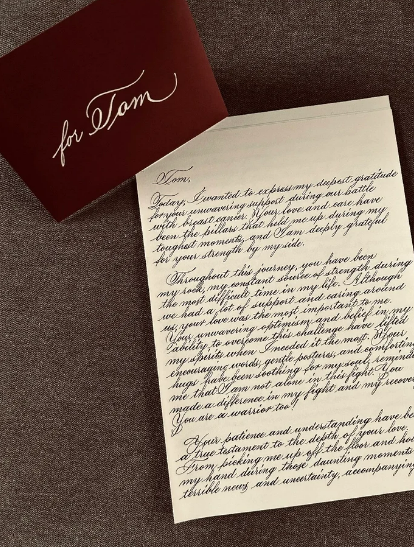 for Tom
Tom,
Today, I wanted to express my deepest gratitude
for your unwavering support during our battle
with breast cancer. Your love and care have
been the pillars that held me up during my
toughest moments, and I am deeply grateful
for your strength by my side.
Throughout this journey, you have been
my rock, my constant source of strength during
the most difficult time in my life. Although
we had a lot of support and caring around
us, your love was the most important to me.
Your unwavering optimism and belief in my
ability to overcome this challenge have lifted
my spirits when I needed it the most. Your
encouraging words, gentle postures, and comforting
hugs have been soothing for my soul, reminding
me that I am not alone in this fight. You
made a difference in my fight and my recovery
You are a warrior too!
Your patience and understanding have been
a true testament to the depth of your love.
From picking me up off the floor and
my hand during those daunting moments
terrible news and uncertainty, accompanying